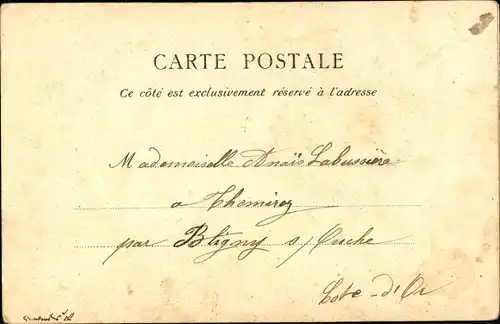 CARTE POSTALE
Ce côté est exclusivement réservé à l'adresse
Mademoiselle Anaïs Labussière
a Thomirey
par Bligny s/ Ouche
Côte-d'Or